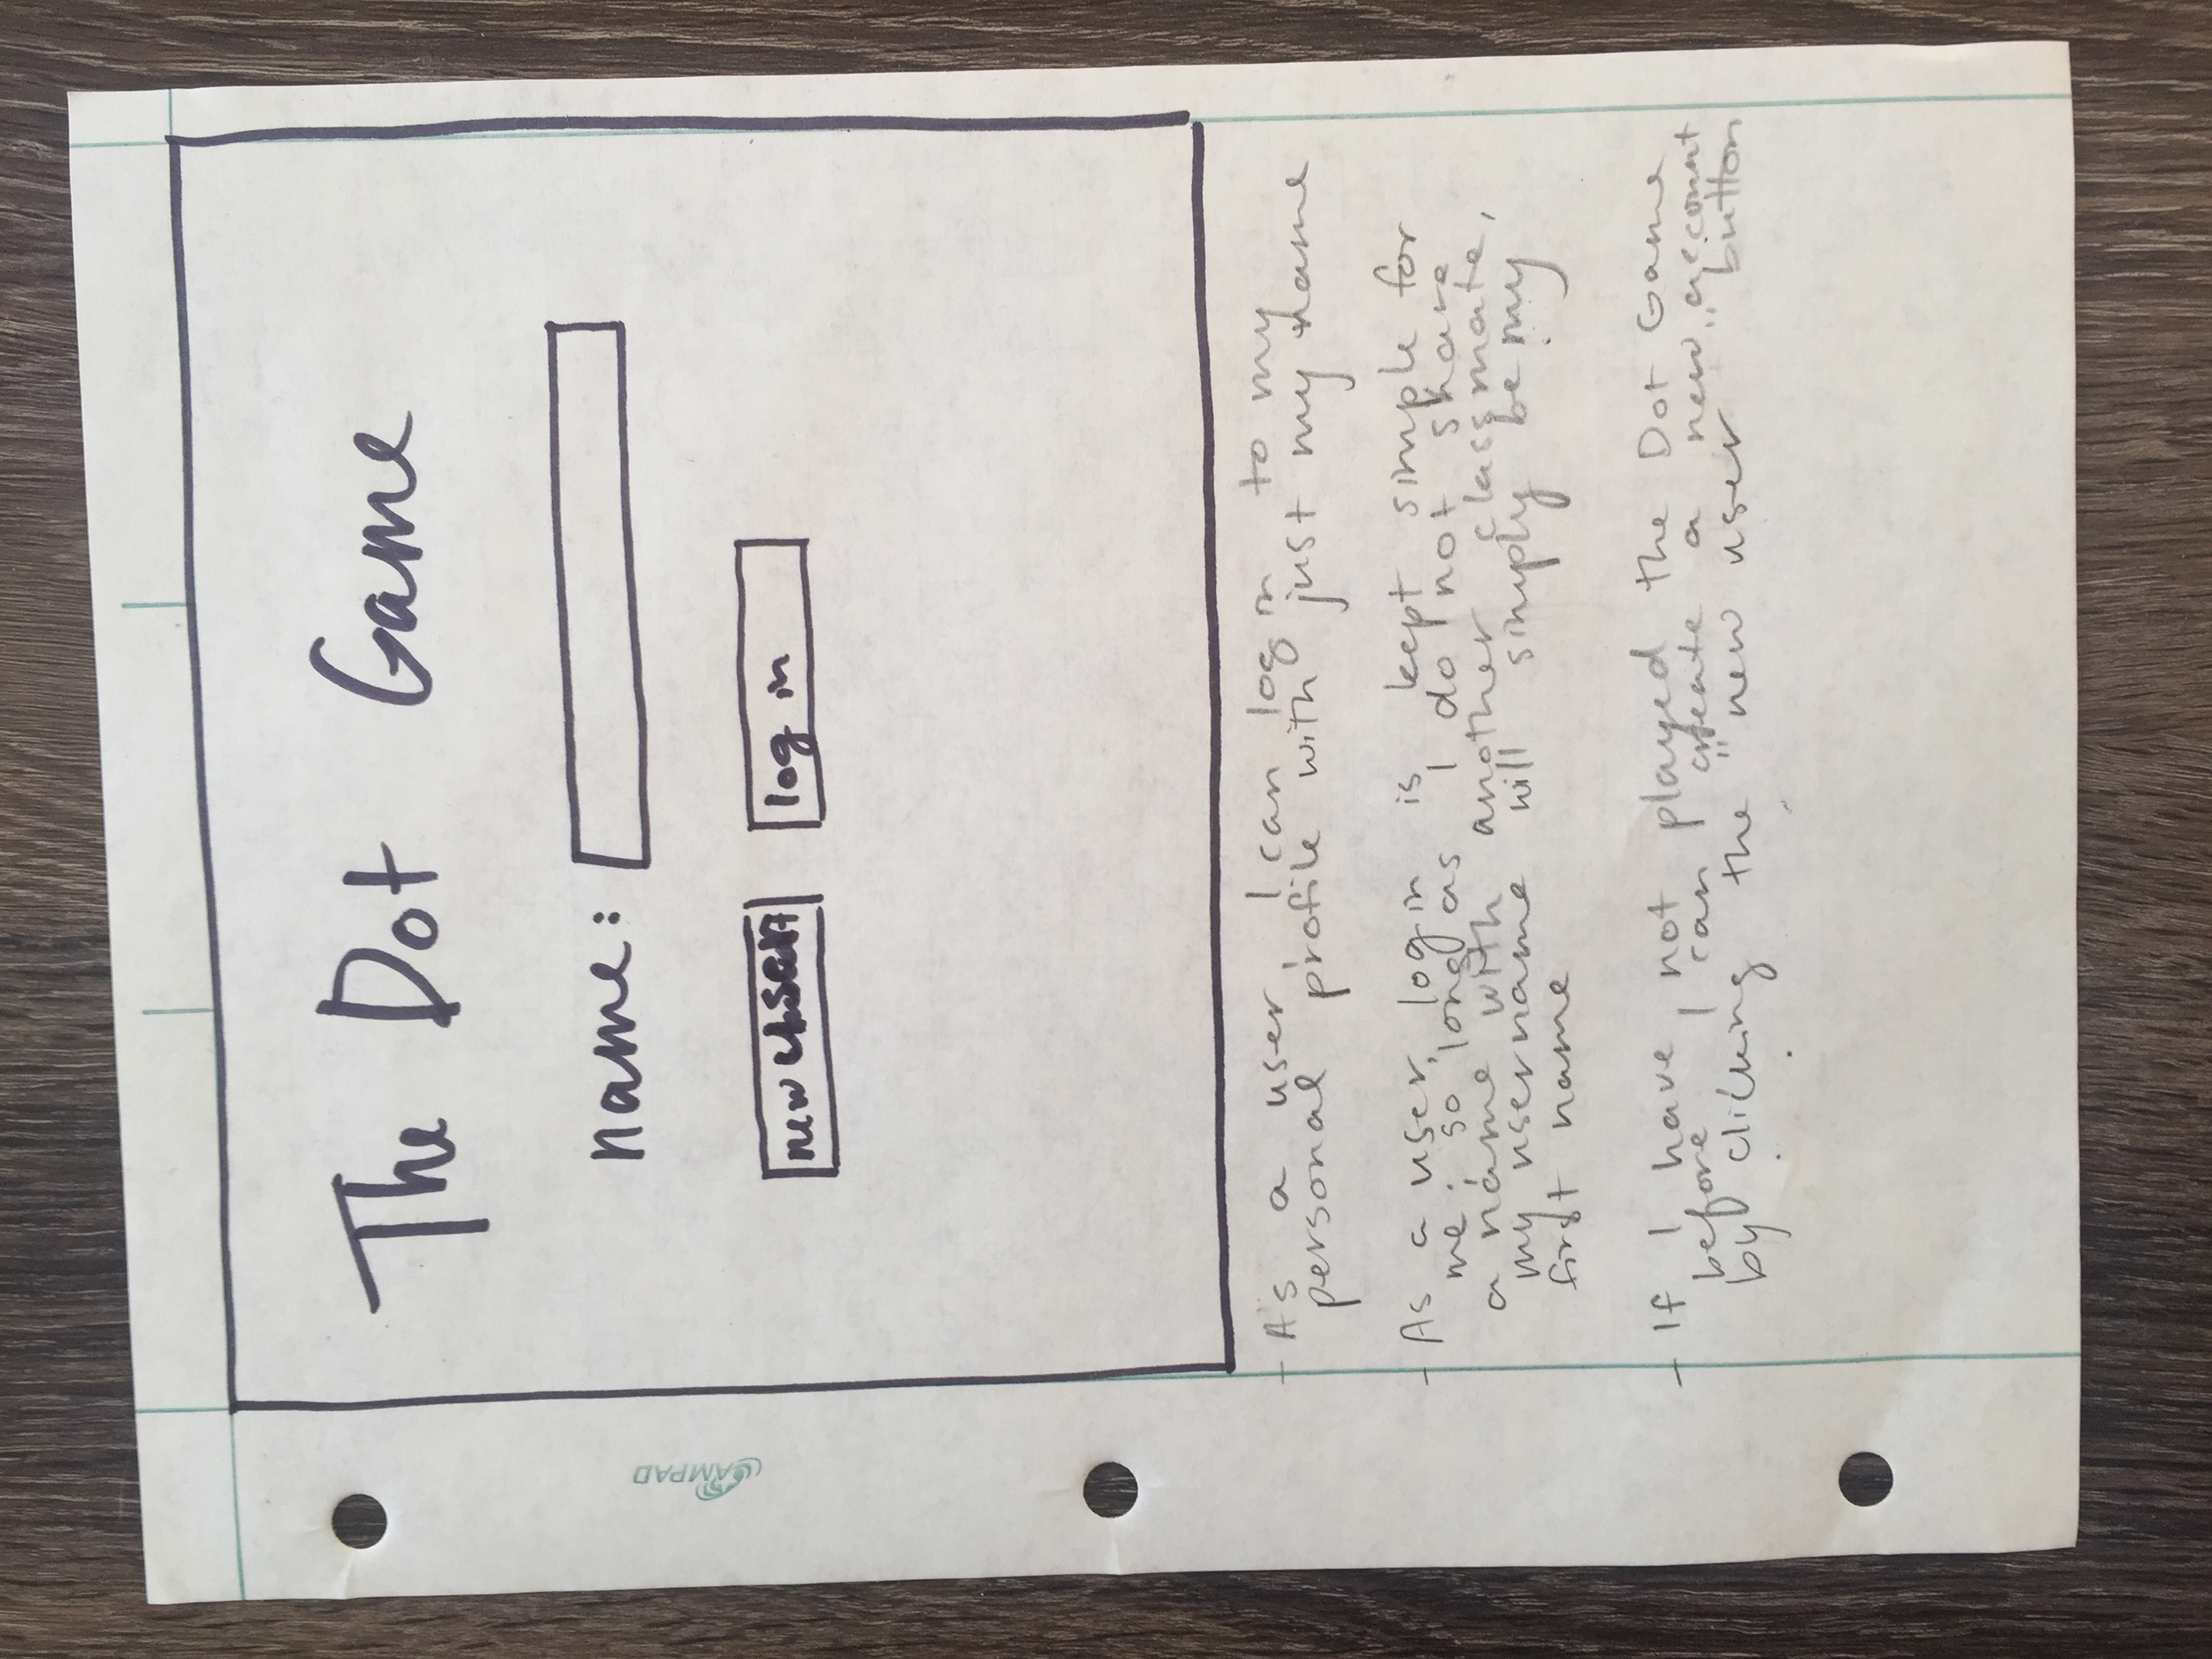 The Dot Game
name:
new user
log in
AMPAD
- As a user, I can log in to my
personal profile with just my name
- As a user, log in is kept simple for
me; so long as I do not share
a name with another classmate,
my username will simply be my
first name
- If I have not played the Dot Game
before, I can create a new account
by clicking the "new user" button